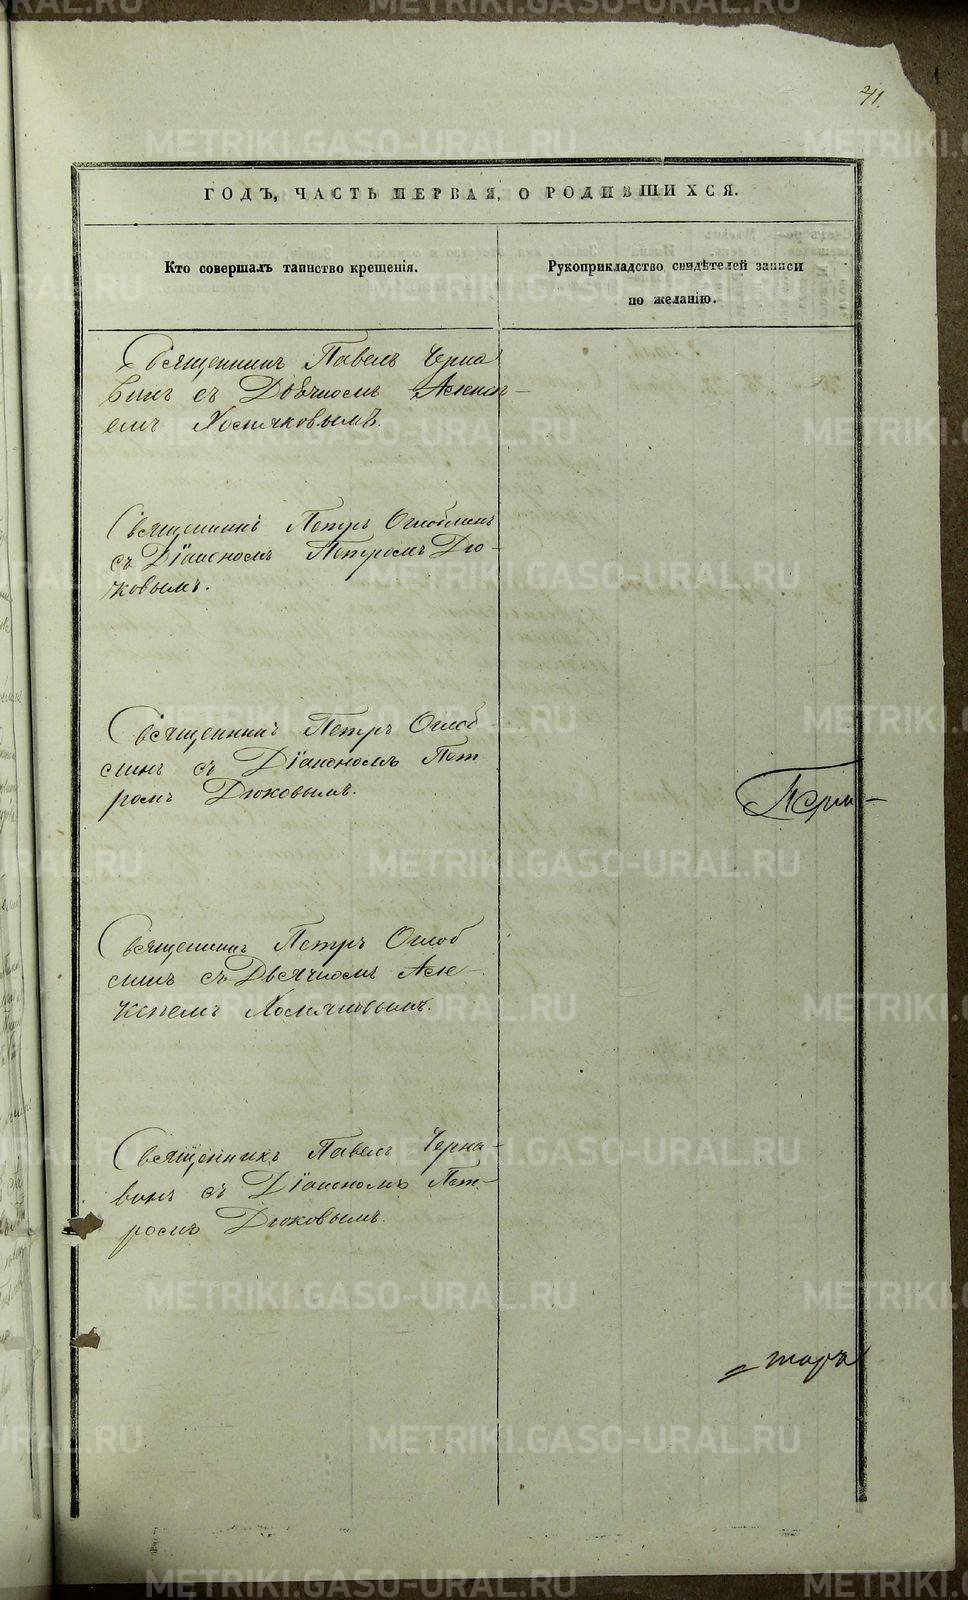 41.
ГОДЪ, ЧАСТЬ ПЕРВАЯ, О РОДИВШИХСЯ.
Кто совершалъ таинство крещенія.
Рукоприкладство свидѣтелей записи
по желанію.
Священникъ Павелъ Черна
винъ съ Дьячкомъ Алексѣ-
емъ Хомяковымъ.
Священникъ Петръ Оглоблинъ
съ Діакономъ Петромъ Дю-
ковымъ.
Священникъ Петръ Оглоб
линъ съ Діакономъ Пет
ромъ Дюковымъ.
Священникъ Петръ Оглоб
линъ съ Дьячкомъ Але-
ксѣемъ Хомяковымъ.
Священникъ Павелъ Черна-
винъ съ Діакономъ Пет-
ромъ Дюковымъ.
METRIKI.GASO-URAL.RU